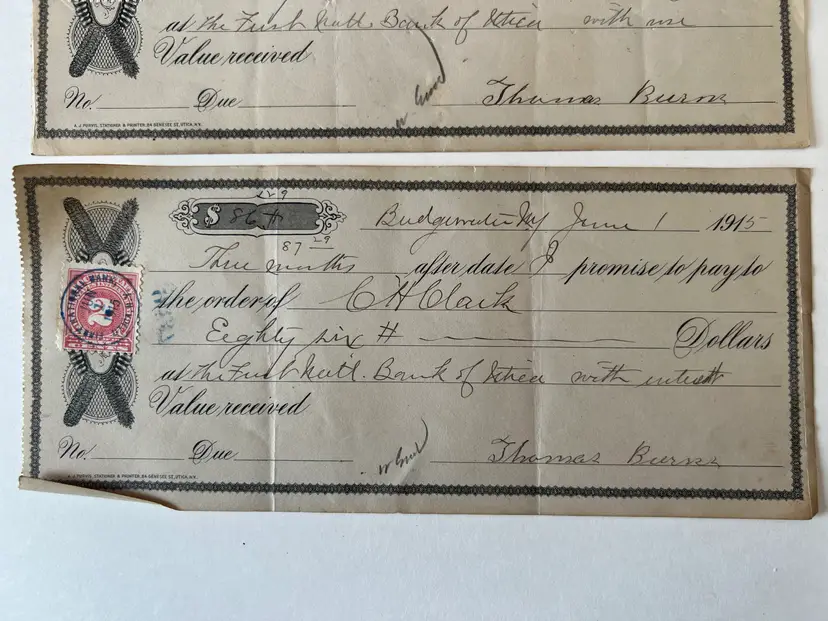 at the First Natl. Bank of Utica with use
Value received
No. Due Thomas Burns
A. J. PURVIS, STATIONER & PRINTER, 84 GENESEE ST, UTICA, N.Y.
$ 86 #
87 29
Bridgewater NY June 1 1915
Three months after date I promise to pay to
the order of C H Clark
Eighty six # Dollars
at the First Natl. Bank of Utica with interest
Value received
No. Due Thomas Burns
A. J. PURVIS, STATIONER & PRINTER, 84 GENESEE ST, UTICA, N.Y.